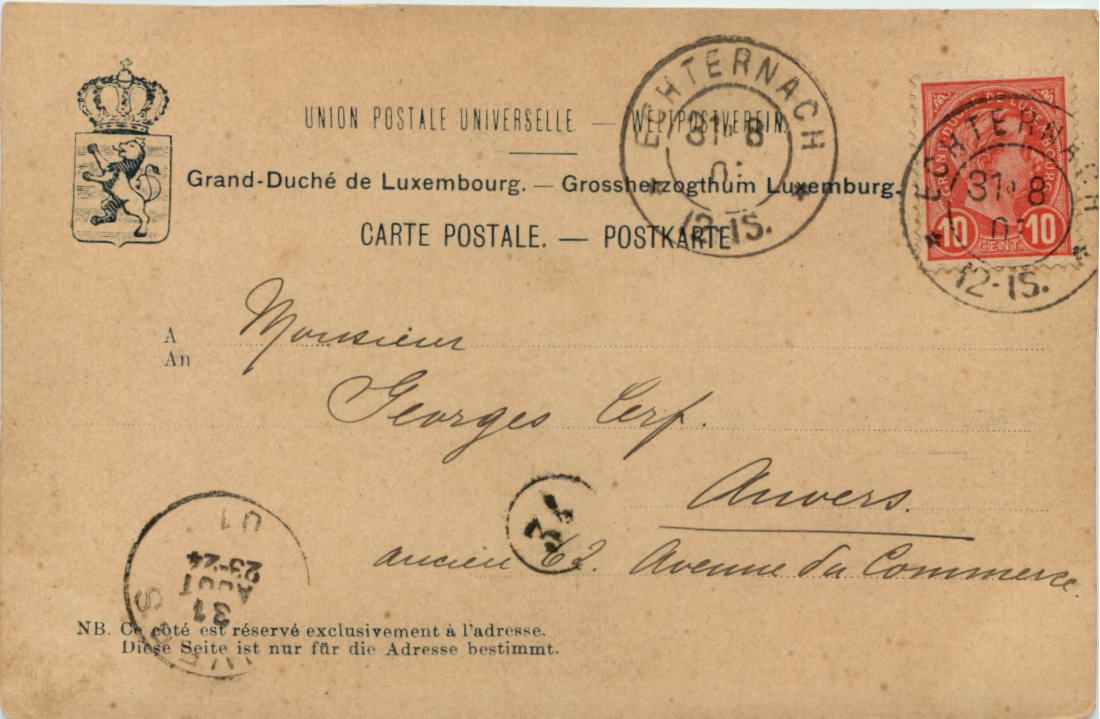 UNION POSTALE UNIVERSELLE. — WELTPOSTVEREIN.
Grand-Duché de Luxembourg. — Grossherzogthum Luxemburg.
CARTE POSTALE. — POSTKARTE
ECHTERNACH
31 8
12-1S.
GRAND DUCHÉ DE LUXEMBOURG
10 CENT. 10
ECHTERNACH
31 8
12-1S.
A
An
Monsieur
Georges Cerf.
Anvers.
ancien 62. Avenue du Commerce
01
23-24
AOUT
31
NB. Ce côté est réservé exclusivement à l'adresse.
Diese Seite ist nur für die Adresse bestimmt.